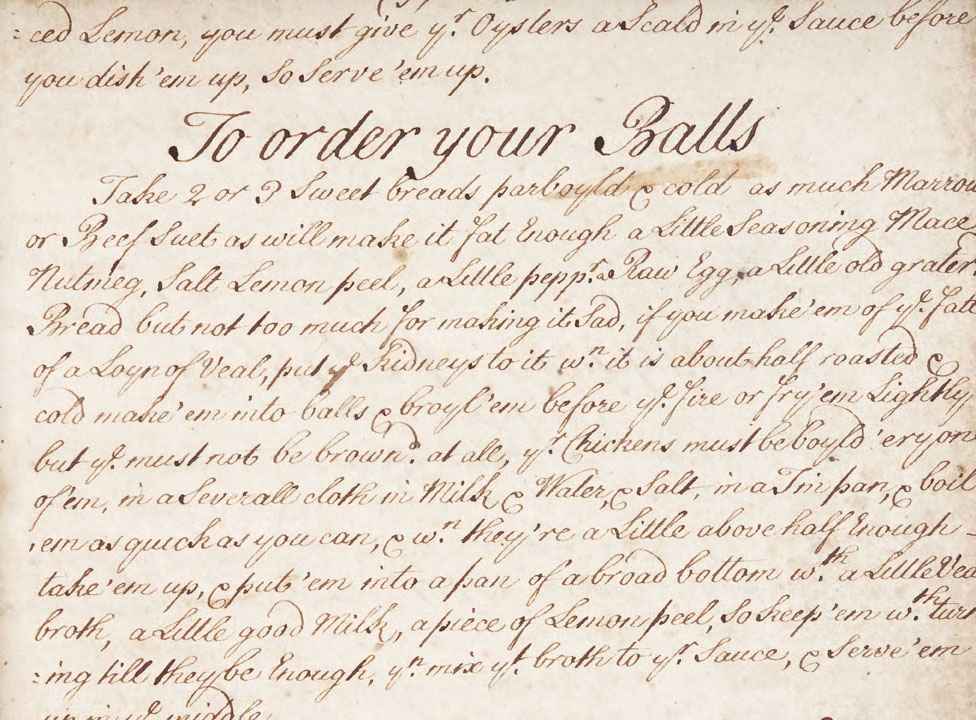 =ced Lemon, you must give yr. Oysters a Scald in ye. Sauce before
you dish 'em up, So Serve 'em up.
To order your Balls
Take 2 or 3 Sweet breads parboyld & cold as much Marrow
or Beef Suet as will make it fat Enough a Little Seasoning Mace
Nutmeg, Salt Lemon peel, a Little peppr. a Raw Egg, a Little old grated
Bread but not too much for making it Sad, if you make 'em of ye. fatt
of a Loyn of Veal, put ye Kidneys to it wn. it is about half roasted &
cold make 'em into balls & broyl 'em before ye. fire or fry 'em Lightly,
but ye. must not be brownd. at all, yr. Chickens must be boyld 'ery on
of 'em, in a Severall cloth in Milk & Water, & Salt, in a Tin pan, & boil
'em as quick as you can, & wn. they're a Little above half Enough -
take 'em up, & put 'em into a pan of a broad bottom wth. a Little Vea
broth, a Little good Milk, a piece of Lemon peel, So keep 'em wth. turn
=ing till they be Enough, yn mix yt. broth to yr. Sauce, & Serve 'em
up in ye. middle